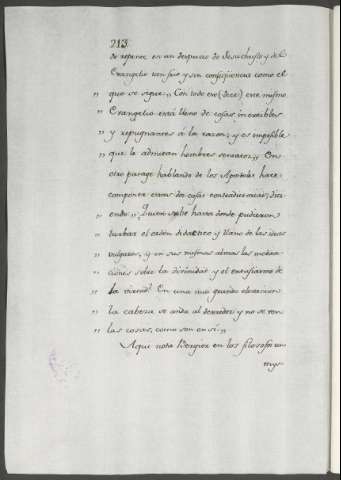 213.
de repente es un despues de Jesu christo y del
Evangelio con fuis y sin consequencias como el
que se sigue. „ Con todo eso (dice) este mismo
„ Evangelio está lleno de cosas increibles
„ y repugnantes á la razon, y es imposible
„ que la admitan hombres sensatos. „ En
otro parage hablando de los Apostoles hace
componer estas dos cosas contradictorias; dici
endo „ Quien sabe hasta donde pudieron
„ turbar el orden didactico y llano de las ideas
„ vulgares, y en sus mismas almas las medita
„ ciones sobre la divinidad y el entusiasmo de
„ la virtud? En una mui grande elevacion
„ la cabeza se anda al derredor, y no se ven
„ las cosas, como son en sí. „
Aqui nota Bergier en los filosofos un
muy